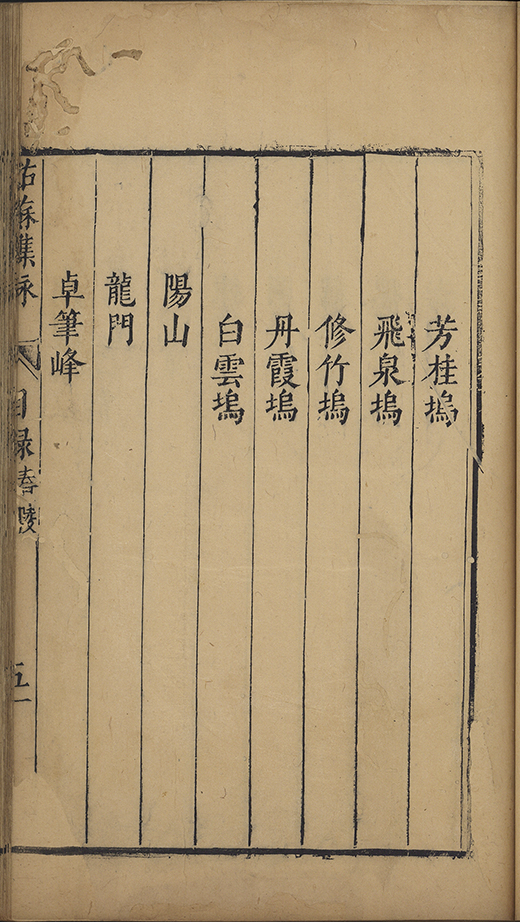 芳桂塢
飛泉塢
修竹塢
丹霞塢
白雲塢
陽山
龍門
卓筆峰
姑蘇雜詠 目録 五